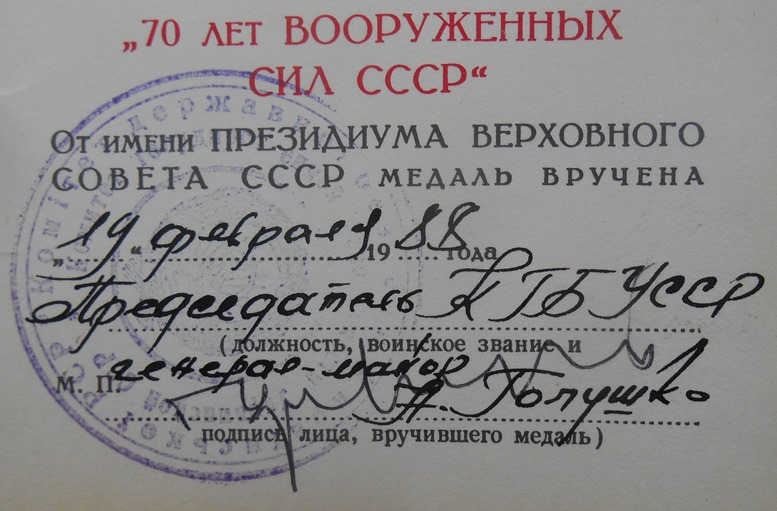 „70 ЛЕТ ВООРУЖЕННЫХ
СИЛ СССР“
ОТ ИМЕНИ ПРЕЗИДИУМА ВЕРХОВНОГО
СОВЕТА СССР МЕДАЛЬ ВРУЧЕНА
„19“ февраля 1988 года
Председатель КГБ УССР
(должность, воинское звание и
М. П. генерал-майор
Н. Голушко
подпись лица, вручившего медаль)